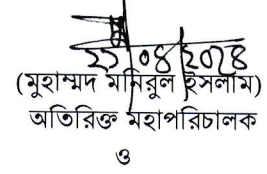 ২১/০৪/২০২৪
(মুহাম্মদ মনিরুল ইসলাম)
অতিরিক্ত মহাপরিচালক
ও